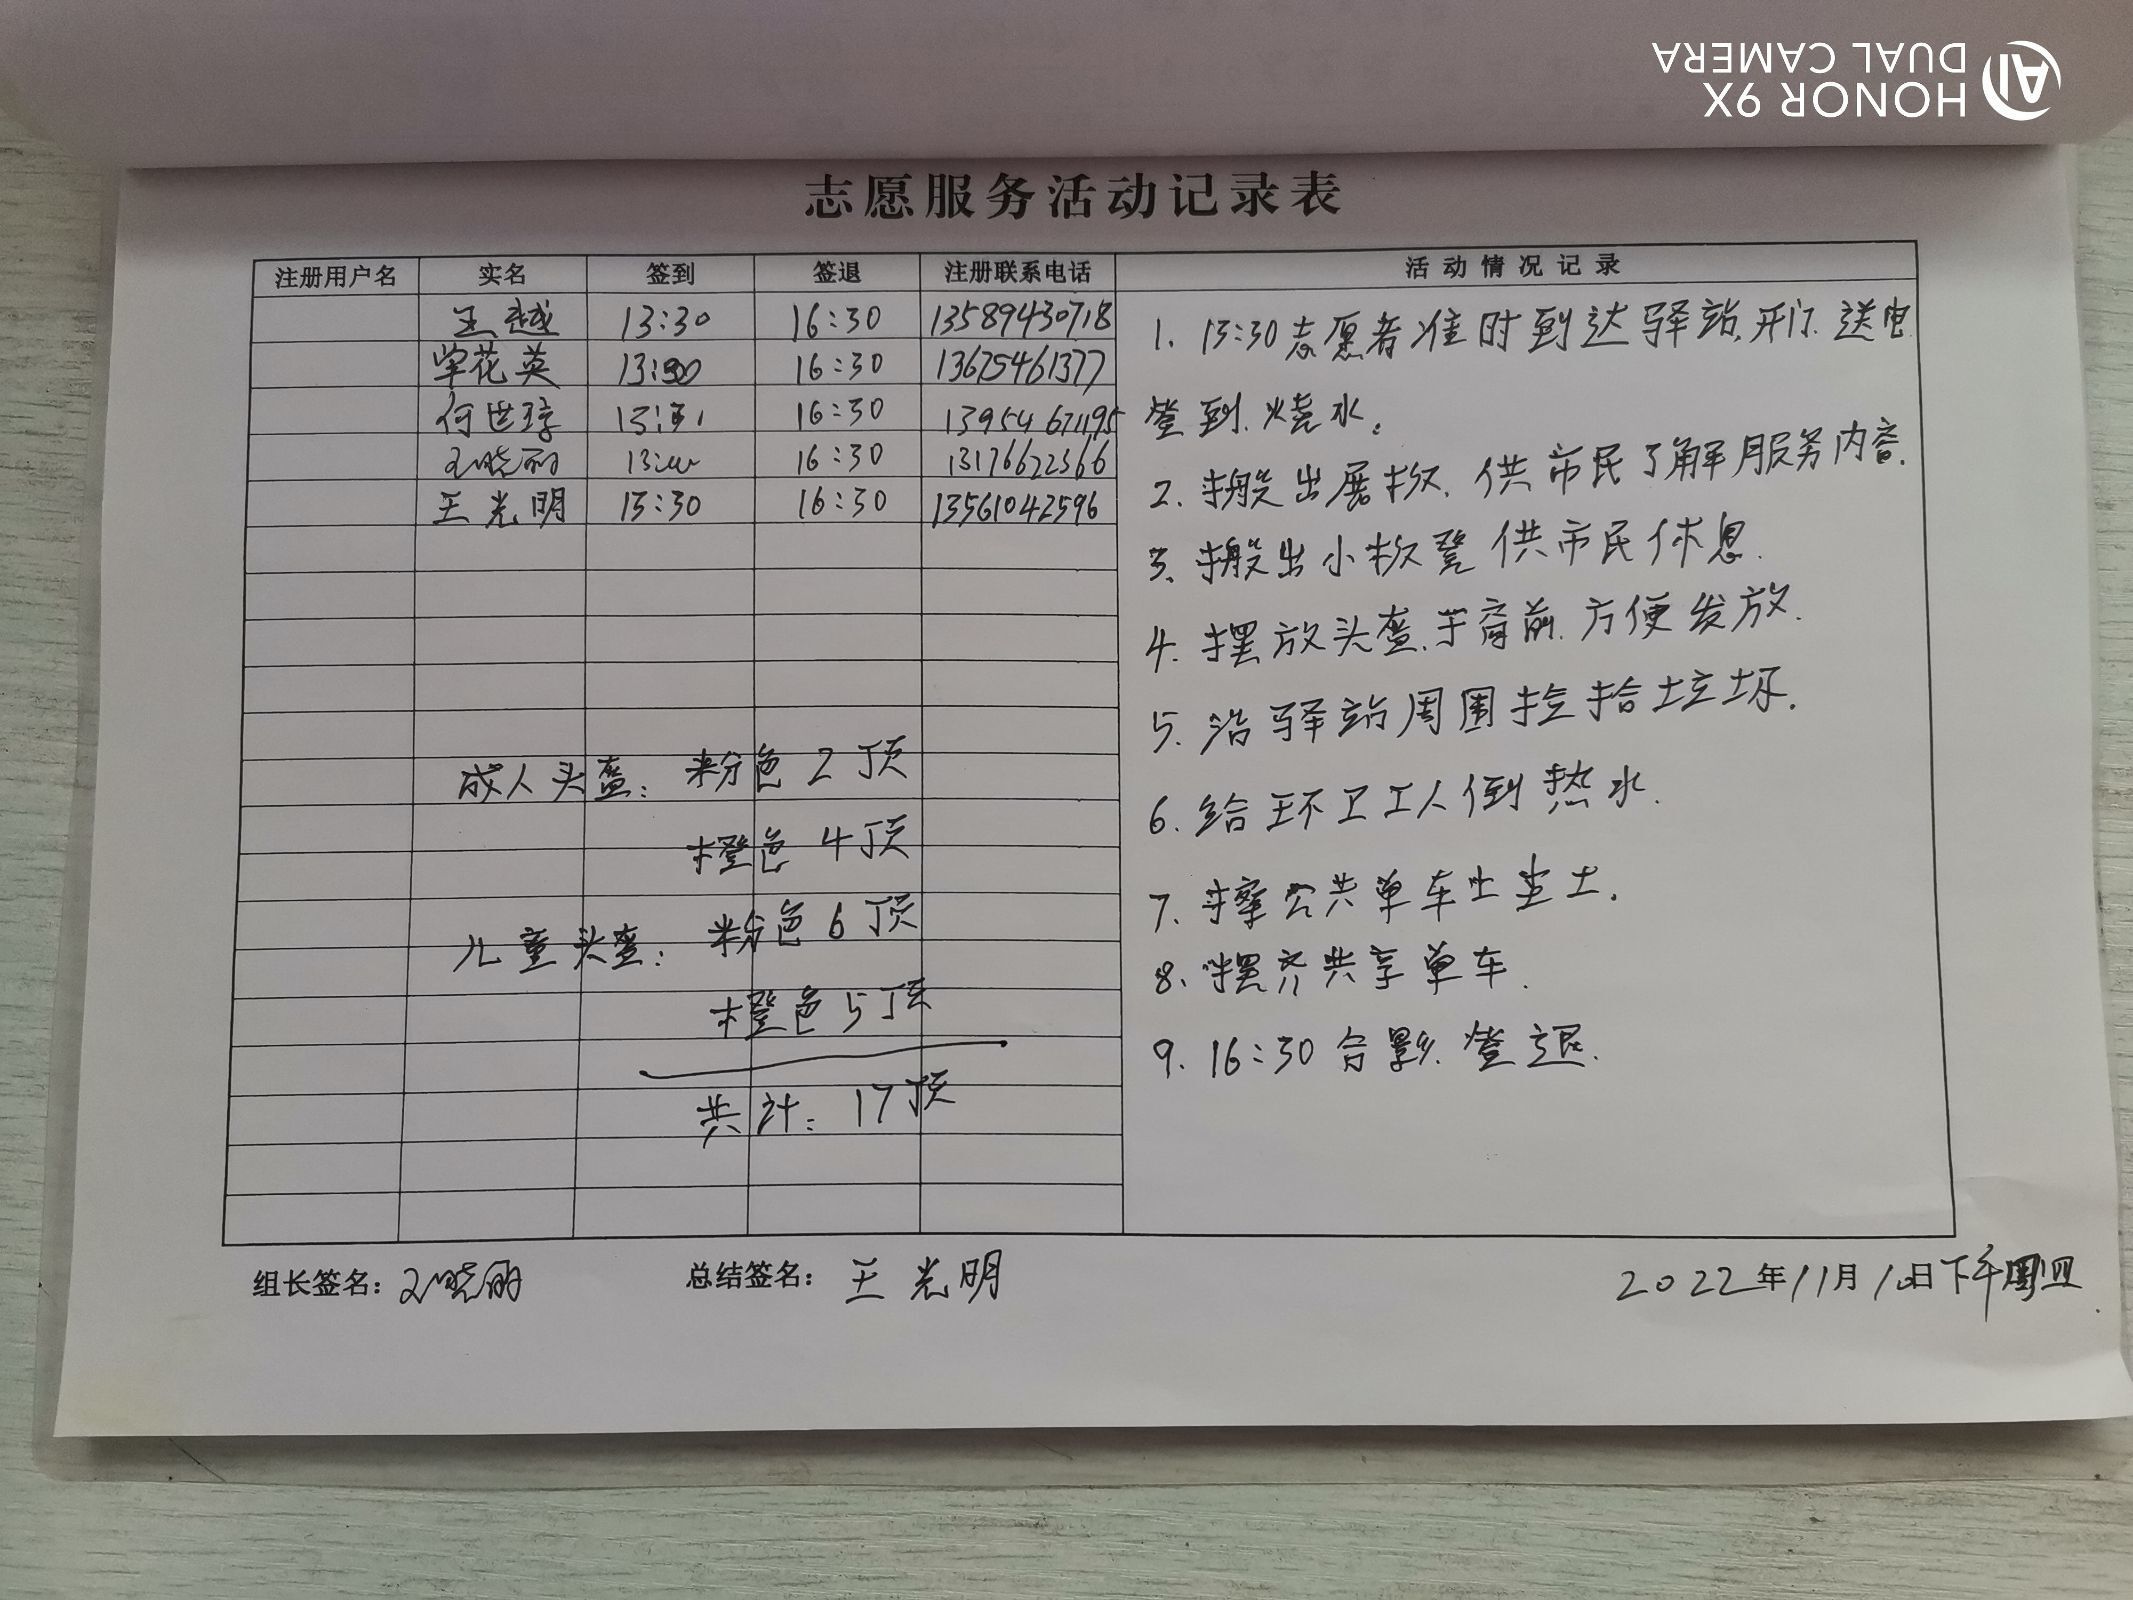 HONOR 9X
DUAL CAMERA
志愿服务活动记录表
注册用户名 实名 签到 签退 注册联系电话 活动情况记录
王越 13:30 16:30 13589430718
花英 16:30 13675461377
何世 16:30 13954671195
王晓丽 16:30 13176622366
王光明 13:30 16:30 13561042596
成人头盔：粉色2顶
橙色4顶
儿童头盔：粉色6顶
橙色5顶
共计：17顶
1. 13:30志愿者准时到达驿站,开门.送电
签到.烧水。
2. 搬出展板.供市民了解服务内容.
3. 搬出小板凳供市民休息.
4. 摆放头盔.于窗前.方便发放.
5. 沿驿站周围捡拾垃圾.
6. 给环卫工人倒热水.
7. 擦公共单车上尘土.
8. 摆齐共享单车.
9. 16:30合影.签退.
组长签名：王晓丽 总结签名：王光明 2022年11月10日下午周四